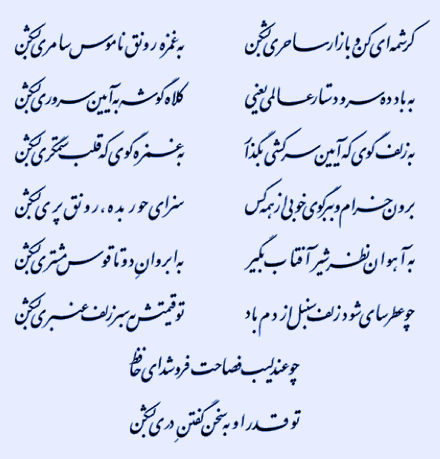 کرشمه‌ای کن و بازار ساحری بشکن به غمزه رونق ناموس سامری بشکن
به باد ده سر و دستار عالمی یعنی کلاه گوشه به آیین سروری بشکن
به زلف گوی که آیین سرکشی بگذار به غمزه گوی که قلب ستمگری بشکن
برون خرام و ببر گوی خوبی از همه کس سزای حور بده، رونق پری بشکن
به آهوان نظر شیر آفتاب بگیر به ابروان دوتا قوس مشتری بشکن
چو عطرسای شود زلف سنبل از دم باد تو قیمتش به سر زلف عنبری بشکن
چو عندلیب فصاحت فروشد ای حافظ
تو قدر او به سخن گفتن دری بشکن